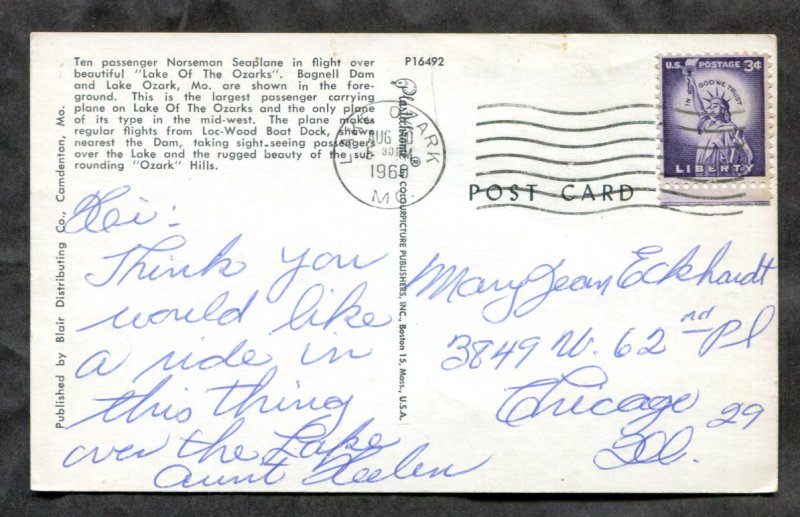 Ten passenger Norseman Seaplane in flight over
beautiful "Lake Of The Ozarks". Bagnell Dam
and Lake Ozark, Mo. are shown in the fore-
ground. This is the largest passenger carrying
plane on Lake Of The Ozarks and the only plane
of its type in the mid-west. The plane makes
regular flights from Loc-Wood Boat Dock, shown
nearest the Dam, taking sight-seeing passengers
over the Lake and the rugged beauty of the sur
rounding "Ozark" Hills.
Published by Blair Distributing Co., Camdenton, Mo.
P16492
Plastichrome ® BY COLOURPICTURE PUBLISHERS, INC., Boston 15, Mass., U.S.A.
LAKE OZARK
AUG
1960
MO.
U.S. POSTAGE 3¢
IN GOD WE TRUST
LIBERTY
POST CARD
Hi:
Think you
would like
a ride in
this thing
over the Lake
Aunt Helen
Mary Jean Eckhardt
3849 W. 62nd Pl
Chicago 29
Ill.